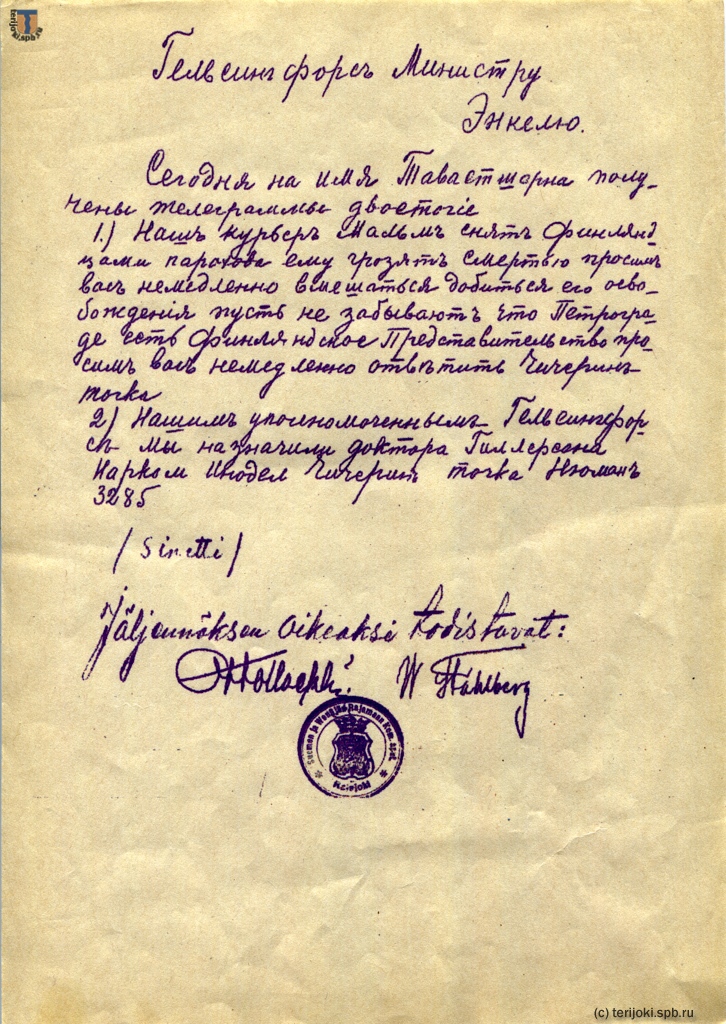 Гельсингфорсъ Министру
Энкелю.
Сегодня на имя Тавастшерна полу-
чены телеграммы двостогіе
1.) Нашъ курьеръ Мальмъ снятъ Финлянд-
цами парохода ему грозятъ смертью просимъ
васъ немедленно вмешаться добиться его осво-
божденія пусть не забываютъ что Петрогра-
де есть Финляндское Представительство про-
симъ васъ немедленно отвѣтить Чичеринъ
точка
2) Нашимъ уполномоченнымъ Гельсингфор-
съ мы назначили доктора Гиллерсона
Нарком Инодел Чичеринъ точка Нюманъ
3285
/ Sinetti /
Jäljennöksen oikeaksi todistavat:
W Ståhlberg
Suomen ja Venäjän Rajamaan Kom.
Raiajoki
terijoki.spb.ru
(c) terijoki.spb.ru